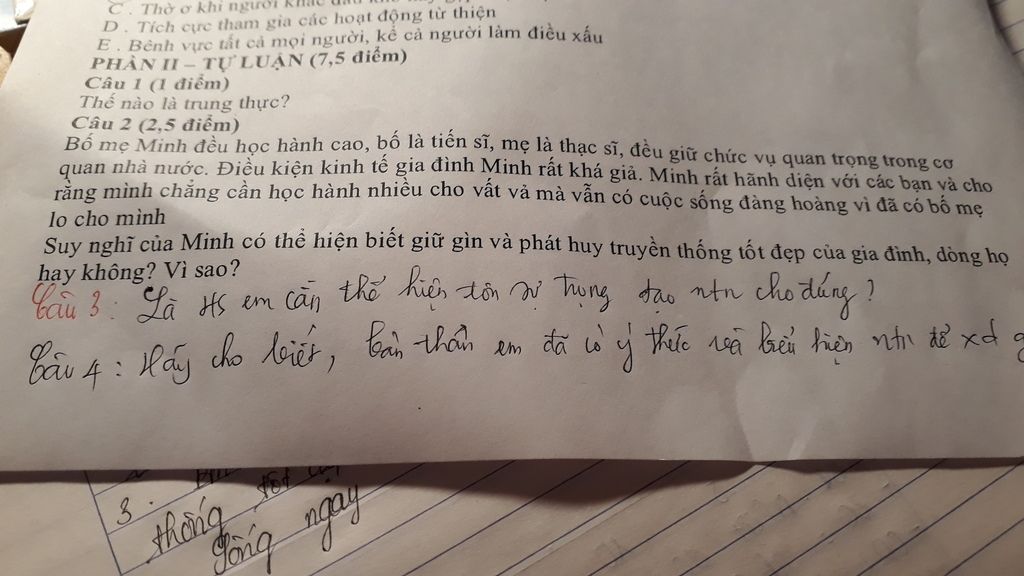 C . Thờ ơ khi người khác
D . Tích cực tham gia các hoạt động từ thiện
E . Bênh vực tất cả mọi người, kể cả người làm điều xấu
PHẦN II – TỰ LUẬN (7,5 điểm)
Câu 1 (1 điểm)
Thế nào là trung thực?
Câu 2 (2,5 điểm)
Bố mẹ Minh đều học hành cao, bố là tiến sĩ, mẹ là thạc sĩ, đều giữ chức vụ quan trọng trong cơ
quan nhà nước. Điều kiện kinh tế gia đình Minh rất khá giả. Minh rất hãnh diện với các bạn và cho
rằng mình chẳng cần học hành nhiều cho vất vả mà vẫn có cuộc sống đàng hoàng vì đã có bố mẹ
lo cho mình
Suy nghĩ của Minh có thể hiện biết giữ gìn và phát huy truyền thống tốt đẹp của gia đình, dòng họ
hay không? Vì sao?
Câu 3 : Là HS em cần thể hiện tôn sư trọng đạo ntn cho đúng ?
Câu 4 : Hãy cho biết, bản thân em đã có ý thức và biểu hiện ntn để xd g
3 .
thống
gông ngay